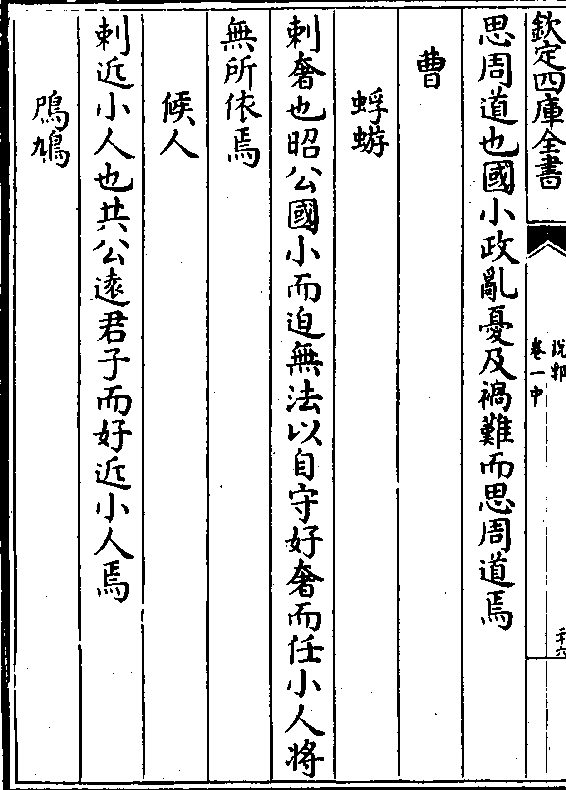 欽定四庫全書
說郛
卷一中
二十六
思周道也國小政亂憂及禍難而思周道焉
曹
蜉蝣
刺奢也昭公國小而迫無法以自守好奢而任小人將
無所依焉
候人
刺近小人也共公遠君子而好近小人焉
鳲鳩